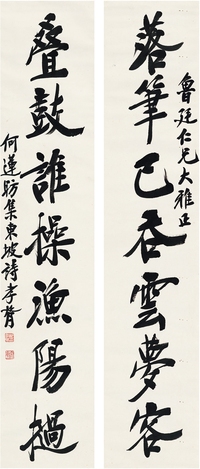 魯廷仁兄大雅正
落筆已吞雲夢客
疊鼓誰操漁陽撾
何蓮昉集東坡詩孝胥